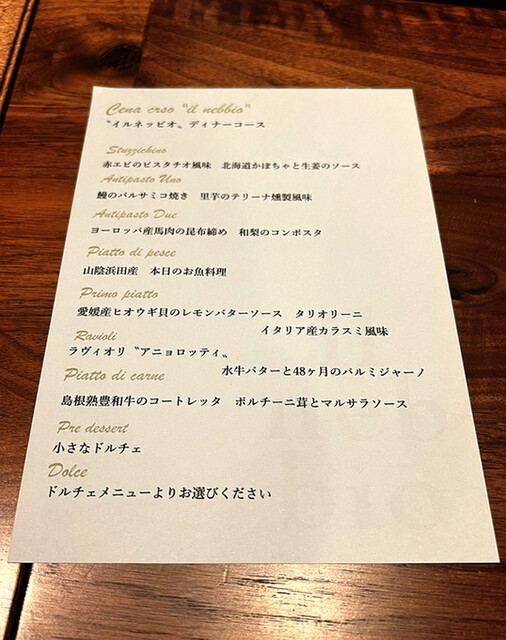 Cena crso "il nebbio"
〝イルネッビオ〟ディナーコース
Stuzzichino
赤エビのピスタチオ風味　北海道かぼちゃと生姜のソース
Antipasto Uno
鰻のバルサミコ焼き　里芋のテリーナ燻製風味
Antipasto Due
ヨーロッパ産馬肉の昆布締め　和梨のコンポスタ
Piatto di pesce
山陰浜田産　本日のお魚料理
Primo piatto
愛媛産ヒオウギ貝のレモンバターソース　タリオリーニ
イタリア産カラスミ風味
Ravioli
ラヴィオリ〝アニョロッティ〟
水牛バターと48ヶ月のパルミジャーノ
Piatto di carne
島根熟豊和牛のコートレッタ　ポルチーニ茸とマルサラソース
Pre dessert
小さなドルチェ
Dolce
ドルチェメニューよりお選びください